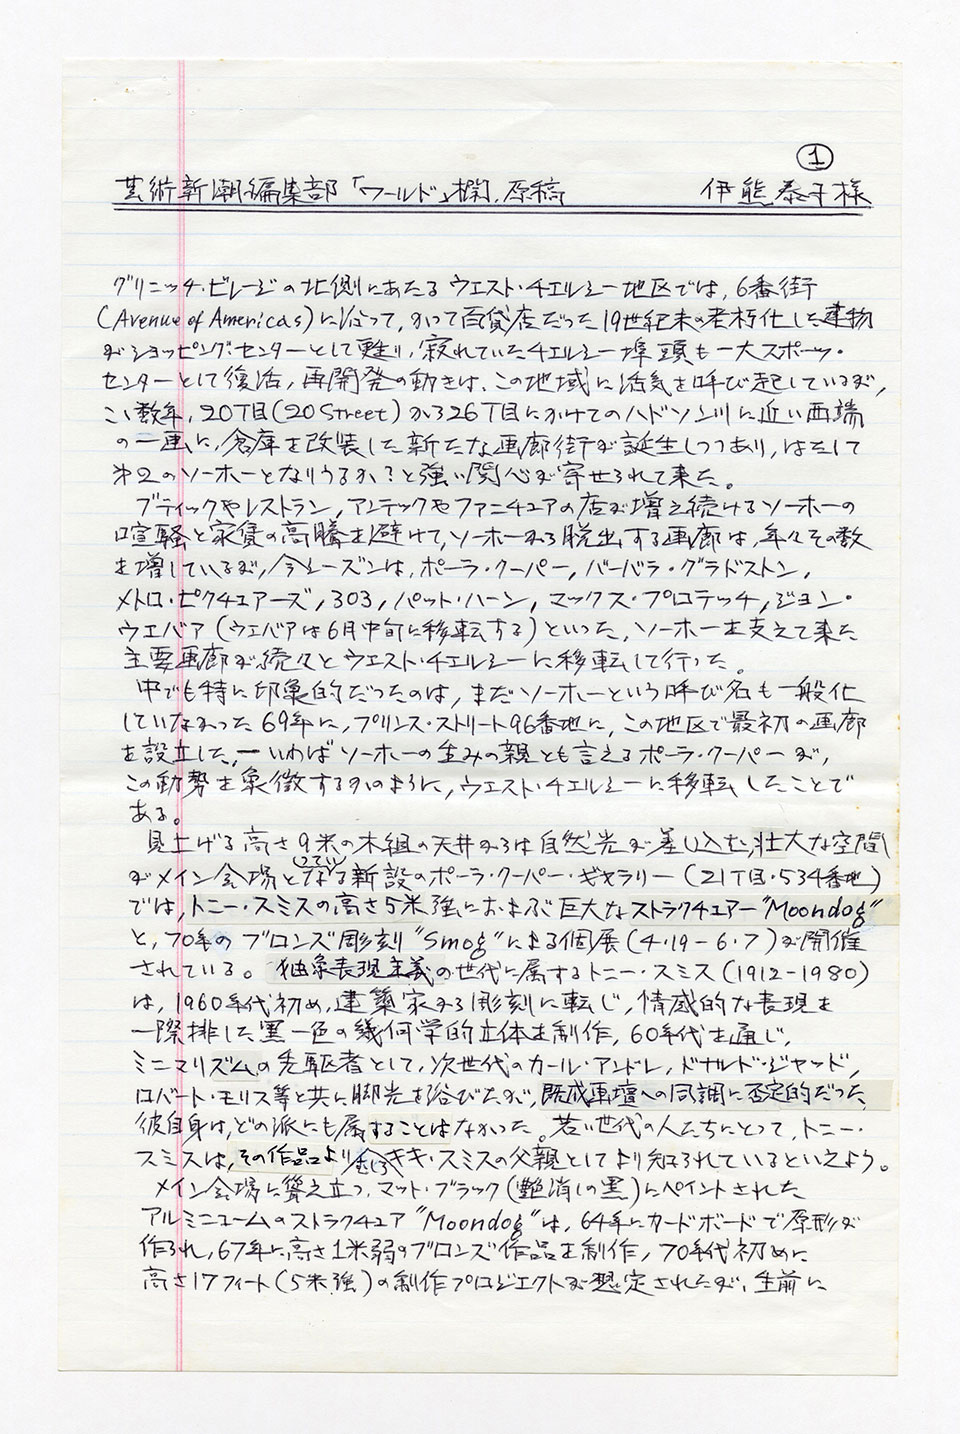 ①
芸術新潮編集部「ワールド」欄、原稿 伊熊泰子様
グリニッチ・ビレージの北側にあたるウエスト・チエルシー地区では、6番街
(Avenue of Americas)に沿って、かつて百貨店だった19世紀末の老朽化した建物
がショッピング・センターとして甦り、寂れていたチエルシー埠頭も一大スポーツ・
センターとして復活、再開発の動きは、この地域に活気を呼び起しているが、
ここ数年、20丁目(20 Street)から26丁目にかけてのハドソン川に近い西端
の一画に、倉庫を改装した新たな画廊街が誕生しつつあり、はたして
第2のソーホーとなりうるか?と強い関心が寄せられて来た。
ブティックやレストラン、アンテックやファニチュアの店が増え続けるソーホーの
喧騒と家賃の高騰を避けて、ソーホーから脱出する画廊は、年々その数
を増しているが、今シーズンは、ポーラ・クーパー、バーバラ・グラドストン、
メトロ・ピクチュアーズ、303、パット・ハーン、マックス・プロテッチ、ジョン・
ウエバア(ウエバアは6月中旬に移転する)といった、ソーホーを支えて来た
主要画廊が続々とウエスト・チエルシーに移転して行った。
中でも特に印象的だったのは、まだソーホーという呼び名も一般化
していなかった69年に、プリンス・ストリート96番地に、この地区で最初の画廊
を設立した、一いわばソーホーの生みの親とも言えるポーラ・クーパーが、
この動勢を象徴するかのように、ウエスト・チエルシーに移転したことで
ある。
見上げる高さ9米の木組の天井からは自然光が差し込む、壮大な空間
がメイン会場となっている新設のポーラ・クーパー・ギャラリー(21丁目・534番地)
では、トニー・スミスの高さ5米強におよぶ巨大なストラクチュアー"Moondog"
と、70年のブロンズ彫刻"Smog"による個展(4・19-6・7)が開催
されている。抽象表現主義の世代に属するトニー・スミス(1912-1980)
は、1960年代初め、建築家から彫刻に転じ、情感的な表現を
一際排した黒一色の幾何学的立体を制作、60年代を通じ、
ミニマリズムの先駆者として、次世代のカール・アンドレ、ドナルド・ジャッド、
ロバート・モリス等と共に脚光を浴びたが、既成画壇への同調に否定的だった
彼自身は、どの派にも属することはなかった。若い世代の人たちにとって、トニー・
スミスは、その作品よりむしろキキ・スミスの父親としてより知られているといえよう。
メイン会場に聳え立つ、マット・ブラック(艶消しの黒)にペイントされた
アルミニュームのストラクチュア"Moondog"は、64年にカードボードで原形が
作られ、67年に高さ1米弱のブロンズ作品を制作、70年代初めに
高さ17フィート(5米強)の制作プロジェクトが想定されたが、生前に